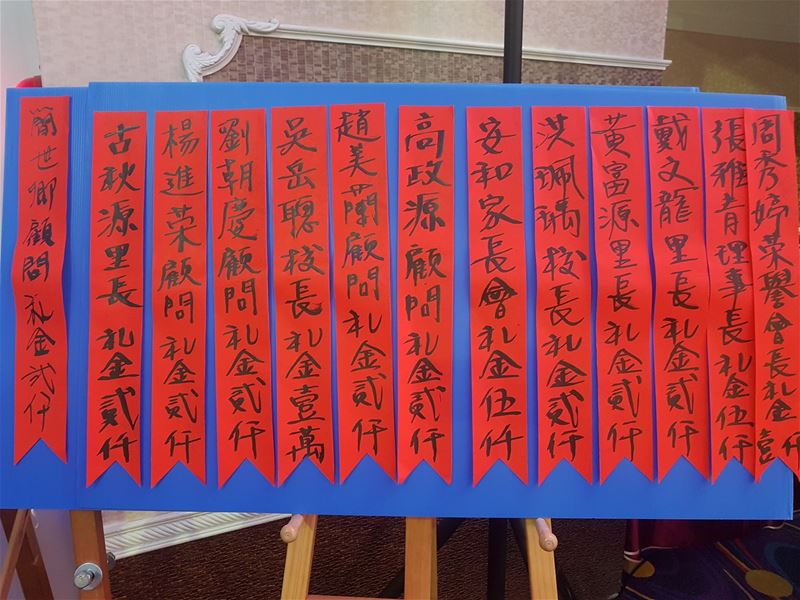 周秀婷榮譽會長礼金壹仟
張雅青理事長礼金伍仟
戴文龍里長礼金貳仟
黃富源里長礼金貳仟
洪珮瑀校長礼金貳仟
安和家長會礼金伍仟
高政源顧問礼金貳仟
趙美蘭顧問礼金貳仟
吳岳聰校長礼金壹萬
劉朝慶顧問礼金貳仟
楊進榮顧問礼金貳仟
古秋源里長礼金貳仟
簡世卿顧問礼金弍仟